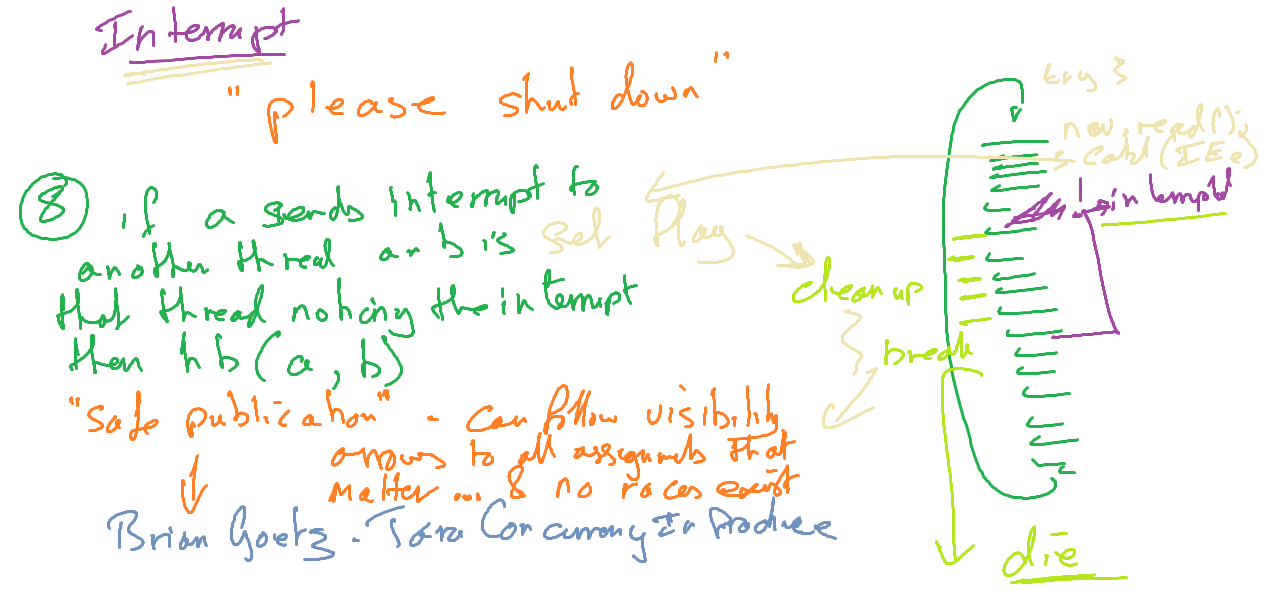 Interrupt
"please shut down"
⑧ if a sends interrupt to
another thread and b is
that thread noticing the interrupt
then hb(a, b)
"Safe publication" - can follow visibility
arrows to all assignments that
matter ... & no races exist
Brian Goetz. Java Concurrency In Practice
set flag
clean up
break
try {
nav.read();
} catch (IE e)
interrupted
die